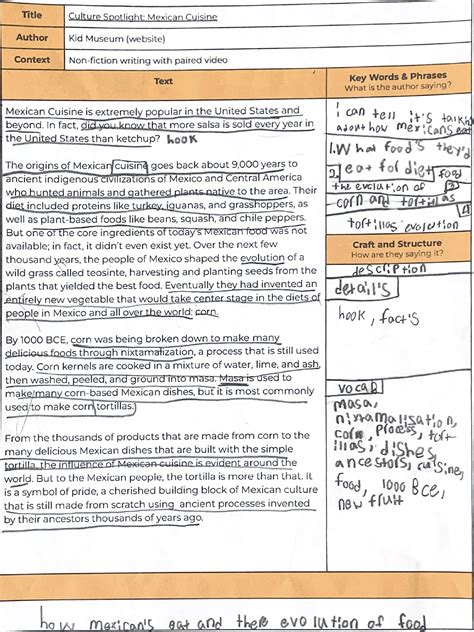 Title Culture Spotlight: Mexican Cuisine
Author Kid Museum (website)
Context Non-fiction writing with paired video
Text
Mexican Cuisine is extremely popular in the United States and
beyond. In fact, did you know that more salsa is sold every year in
the United States than ketchup? hook
The origins of Mexican Cuisine goes back about 9,000 years to
ancient indigenous civilizations of Mexico and Central America
who hunted animals and gathered plants native to the area. Their
diet included proteins like turkey, iguanas, and grasshoppers, as
well as plant-based foods like beans, squash, and chile peppers.
But one of the core ingredients of today's Mexican food was not
available; in fact, it didn't even exist yet. Over the next few
thousand years, the people of Mexico shaped the evolution of a
wild grass called teosinte, harvesting and planting seeds from the
plants that yielded the best food. Eventually they had invented an
entirely new vegetable that would take center stage in the diets of
people in Mexico and all over the world: corn.
By 1000 BCE, corn was being broken down to make many
delicious foods through nixtamalization, a process that is still used
today. Corn kernels are cooked in a mixture of water, lime, and ash,
then washed, peeled, and ground into masa. Masa is used to
make many corn-based Mexican dishes, but it is most commonly
used to make corn tortillas.
From the thousands of products that are made from corn to the
many delicious Mexican dishes that are built with the simple
tortilla, the influence of Mexican cuisine is evident around the
world. But to the Mexican people, the tortilla is more than that. It
is a symbol of pride, a cherished building block of Mexican culture
that is still made from scratch using ancient processes invented
by their ancestors thousands of years ago.
Key Words & Phrases
What is the author saying?
i can tell it's talking
about how mexicans eat
1. What food's they'd
2. eat for diet food
the evolation of 3
corn and tortillas
4
tortillas evolution
Craft and Structure
How are they saying it?
descliption
detail's
hook, fact's
vocab
masa,
nixtamalisation,
corn, process, tort-
illas, dishes,
ancestors, cuisine,
food, 1000 BCE,
new fruit
how mexican's eat and there evolution of food